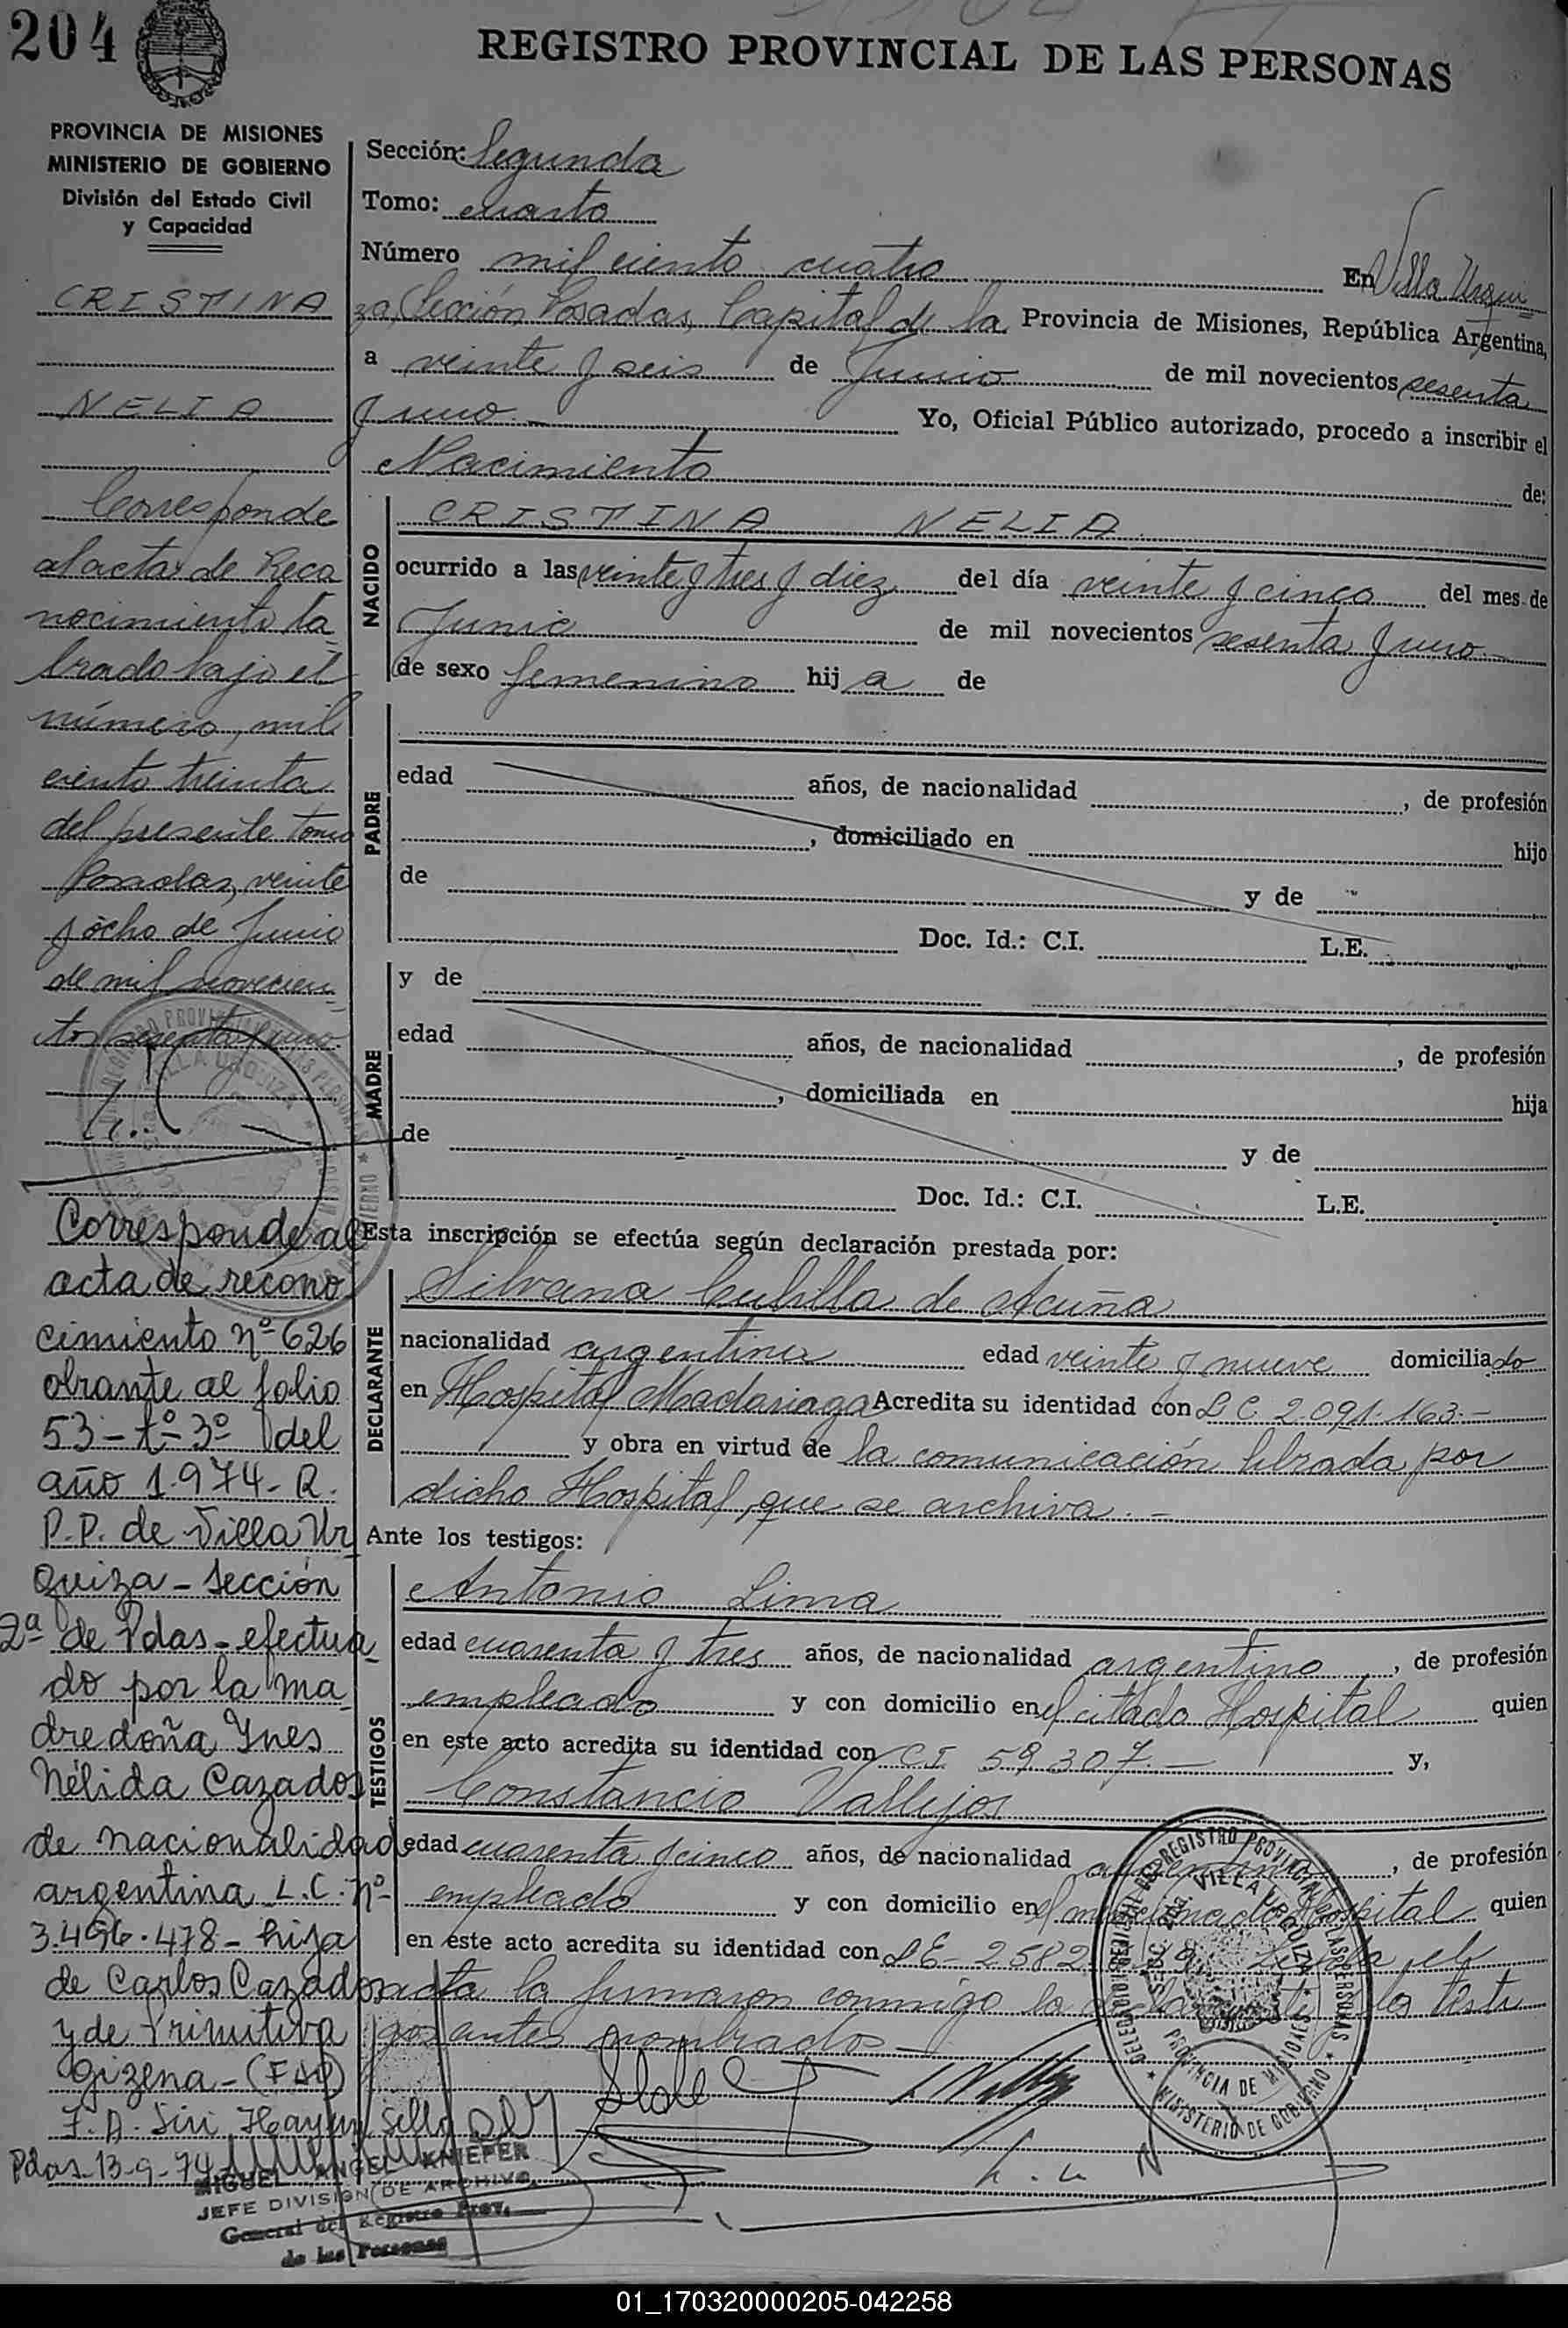 204
REGISTRO PROVINCIAL DE LAS PERSONAS
PROVINCIA DE MISIONES
MINISTERIO DE GOBIERNO
División del Estado Civil
y Capacidad
CRISTINA
NELIA
Corresponde
al acta de Reco
nocimiento la_
brado bajo el
número, mil
ciento treinta
del presente tomo
Posadas, veinte
y ocho de Junio
de mil novecien_
tos sesenta y uno.
Corresponde al
acta de recono
cimiento nº 626
obrante al folio
53 - tº 3º del
año 1.974 - R.
P.P. de Villa Ur_
quiza - Sección
2ª de Pdas - efectua_
do por la ma_
dre doña Ynes
Nélida Cazados
de nacionalidad
argentina L.C. nº
3.496.478 - hija
de Carlos Cazados
y de Primitiva
Gizena - (Fdo)
Sello
Pdas. 13-9-74
MIGUEL ANGEL KNIEFER
JEFE DIVISIÓN DE ARCHIVO
General del Registro Prov.
de las Personas
Sección: Segunda
Tomo: cuarto
Número mil ciento cuatro En Villa Urqui_
za, Sección Posadas, Capital de la Provincia de Misiones, República Argentina,
a veinte y seis de Junio de mil novecientos sesenta
y uno.- Yo, Oficial Público autorizado, procedo a inscribir el
Nacimiento de:
NACIDO
CRISTINA NELIA
ocurrido a las veinte y tres y diez del día veinte y cinco del mes de
Junio de mil novecientos sesenta y uno.-
de sexo femenino hija de
PADRE
edad años, de nacionalidad , de profesión
, domiciliado en hijo
de y de
Doc. Id.: C.I. L.E.
MADRE
y de
edad años, de nacionalidad , de profesión
, domiciliada en hija
de y de
Doc. Id.: C.I. L.E.
Esta inscripción se efectúa según declaración prestada por:
DECLARANTE
Silvana Cubilla de Acuña
nacionalidad argentina edad veinte y nueve domiciliado
en Hospital Madariaga Acredita su identidad con L.C. 2.091.163.-
y obra en virtud de la comunicación librada por
dicho Hospital, que se archiva.-
Ante los testigos:
TESTIGOS
Antonio Lima
edad cuarenta y tres años, de nacionalidad argentino , de profesión
empleado y con domicilio en el citado Hospital quien
en este acto acredita su identidad con C.I. 59.307.- y,
Constancio Vallejos
edad cuarenta y cinco años, de nacionalidad argentino , de profesión
empleado y con domicilio en el mencionado Hospital quien
en este acto acredita su identidad con L.E. 2582 Leída el
acta la firmaron conmigo la declarante y los testi_
gos antes nombrados.-
DELEGADO DEL REGISTRO PROVINCIAL DE LAS PERSONAS
SECC. 2da. VILLA URQUIZA
PROVINCIA DE MISIONES
MINISTERIO DE GOBIERNO
01_170320000205-042258